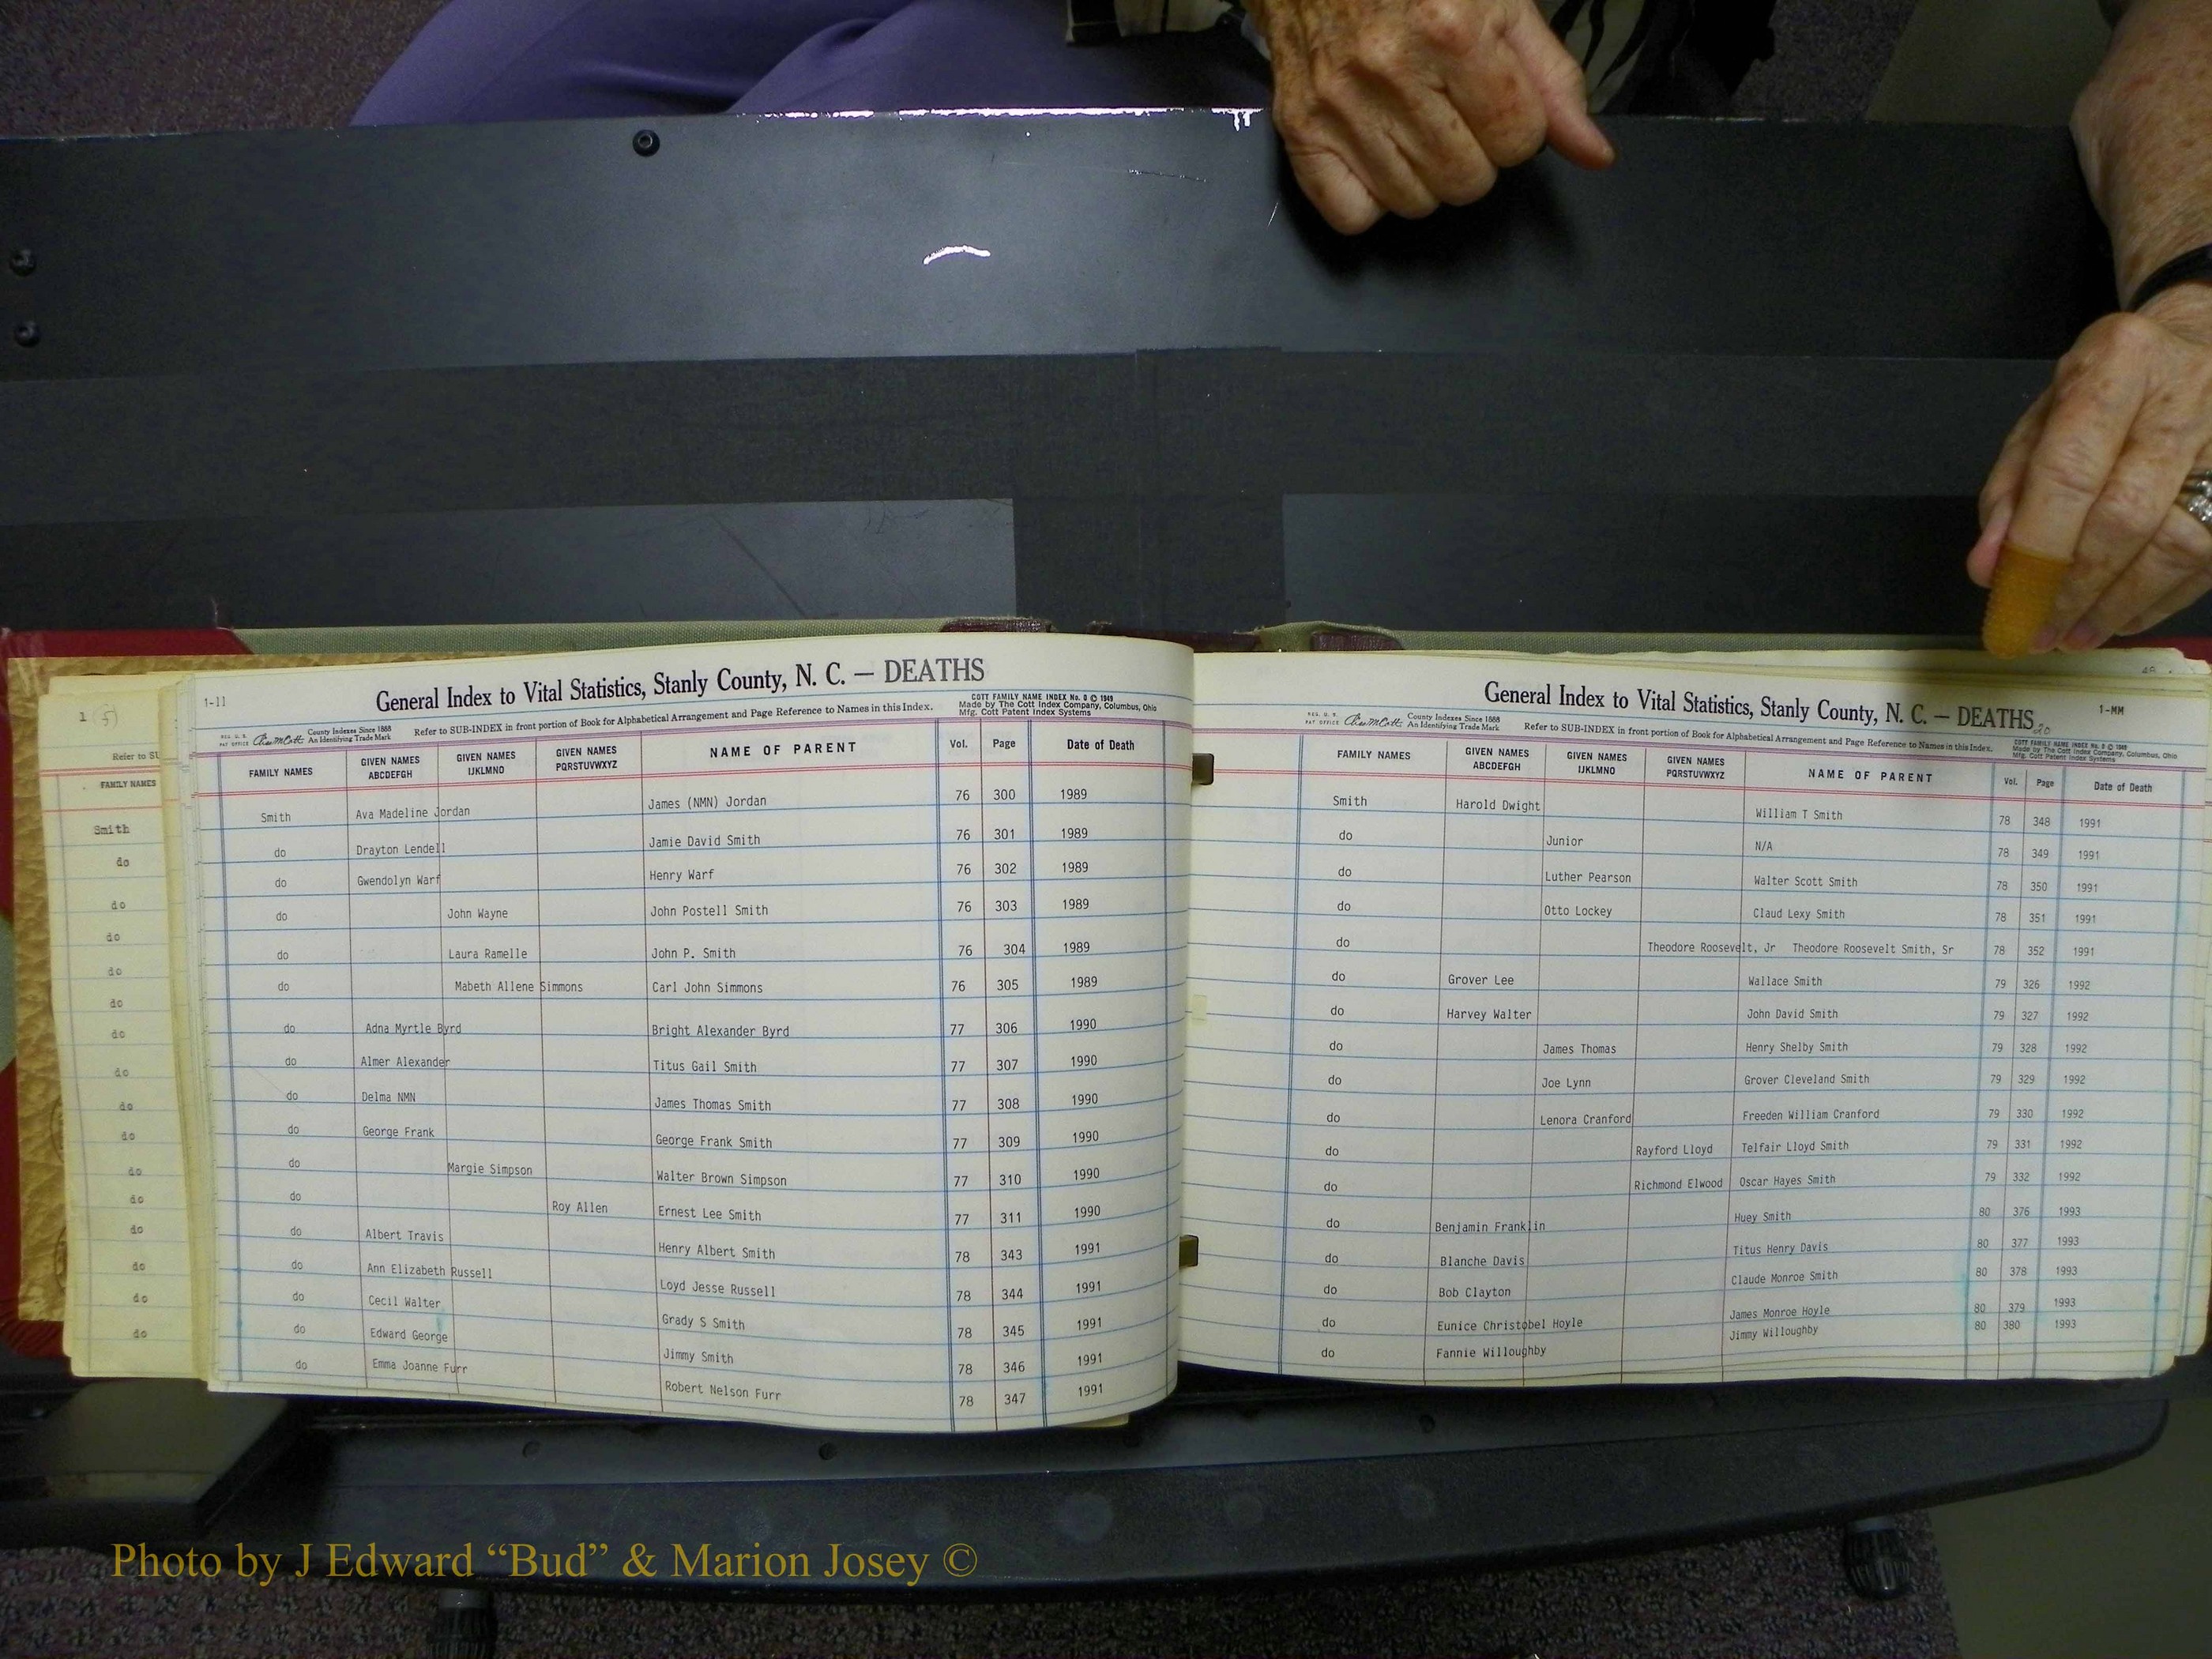 1 (5)
Refer to SU
FAMILY NAMES
Smith
do
do
do
do
do
do
do
do
do
do
do
do
do
do
do
1-11
General Index to Vital Statistics, Stanly County, N. C. — DEATHS
REG. U. S. PAT OFFICE
County Indexes Since 1888
An Identifying Trade Mark
Refer to SUB-INDEX in front portion of Book for Alphabetical Arrangement and Page Reference to Names in this Index.
COTT FAMILY NAME INDEX No. 0 © 1949
Made by The Cott Index Company, Columbus, Ohio
Mfg. Cott Patent Index Systems
FAMILY NAMES GIVEN NAMES ABCDEFGH GIVEN NAMES IJKLMNO GIVEN NAMES PQRSTUVWXYZ NAME OF PARENT Vol. Page Date of Death
Smith Ava Madeline Jordan James (NMN) Jordan 76 300 1989
do Drayton Lendell Jamie David Smith 76 301 1989
do Gwendolyn Warf Henry Warf 76 302 1989
do John Wayne John Postell Smith 76 303 1989
do Laura Ramelle John P. Smith 76 304 1989
do Mabeth Allene Simmons Carl John Simmons 76 305 1989
do Adna Myrtle Byrd Bright Alexander Byrd 77 306 1990
do Almer Alexander Titus Gail Smith 77 307 1990
do Delma NMN James Thomas Smith 77 308 1990
do George Frank George Frank Smith 77 309 1990
do Margie Simpson Walter Brown Simpson 77 310 1990
do Roy Allen Ernest Lee Smith 77 311 1990
do Albert Travis Henry Albert Smith 78 343 1991
do Ann Elizabeth Russell Loyd Jesse Russell 78 344 1991
do Cecil Walter Grady S Smith 78 345 1991
do Edward George Jimmy Smith 78 346 1991
do Emma Joanne Furr Robert Nelson Furr 78 347 1991
General Index to Vital Statistics, Stanly County, N. C. — DEATHS
1-MM
REG. U. S. PAT OFFICE
County Indexes Since 1888
An Identifying Trade Mark
Refer to SUB-INDEX in front portion of Book for Alphabetical Arrangement and Page Reference to Names in this Index.
COTT FAMILY NAME INDEX No. 0 © 1949
Made by The Cott Index Company, Columbus, Ohio
Mfg. Cott Patent Index Systems
FAMILY NAMES GIVEN NAMES ABCDEFGH GIVEN NAMES IJKLMNO GIVEN NAMES PQRSTUVWXYZ NAME OF PARENT Vol. Page Date of Death
Smith Harold Dwight William T Smith 78 348 1991
do Junior N/A 78 349 1991
do Luther Pearson Walter Scott Smith 78 350 1991
do Otto Lockey Claud Lexy Smith 78 351 1991
do Theodore Roosevelt, Jr Theodore Roosevelt Smith, Sr 78 352 1991
do Grover Lee Wallace Smith 79 326 1992
do Harvey Walter John David Smith 79 327 1992
do James Thomas Henry Shelby Smith 79 328 1992
do Joe Lynn Grover Cleveland Smith 79 329 1992
do Lenora Cranford Freeden William Cranford 79 330 1992
do Rayford Lloyd Telfair Lloyd Smith 79 331 1992
do Richmond Elwood Oscar Hayes Smith 79 332 1992
do Benjamin Franklin Huey Smith 80 376 1993
do Blanche Davis Titus Henry Davis 80 377 1993
do Bob Clayton Claude Monroe Smith 80 378 1993
do Eunice Christobel Hoyle James Monroe Hoyle 80 379 1993
do Fannie Willoughby Jimmy Willoughby 80 380 1993
Photo by J Edward “Bud” & Marion Josey ©